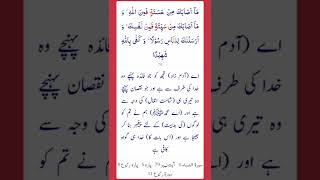 مَآ اَصَابَكَ مِنْ حَسَنَةٍ فَمِنَ اللّٰهِ ۫ وَ
مَآ اَصَابَكَ مِنْ سَيِّئَةٍ فَمِنْ نَّفْسِكَ ؕ وَ
اَرْسَلْنٰكَ لِلنَّاسِ رَسُوْلًا ؕ وَ كَفٰى بِاللّٰهِ
شَهِيْدًا
اے (آدم زاد) تجھ کو جو فائدہ پہنچے وہ
خدا کی طرف سے ہے اور جو نقصان پہنچے
وہ تیری ہی (شامت اعمال) کی وجہ سے
ہے اور (اے محمدﷺ) ہم نے تم کو
لوگوں (کی ہدایت) کے لئے پیغمبر بنا کر
بھیجا ہے اور (اس بات کا) خدا ہی گواہ
کافی ہے